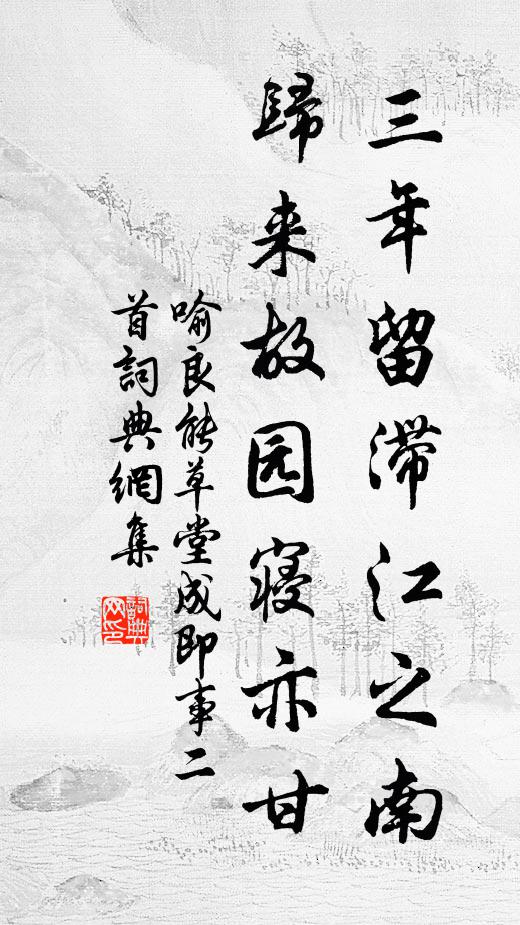 三年留滞江之南
歸来故园寢亦甘
喻良能草堂成即事二
首詞典網集
詞典
网印